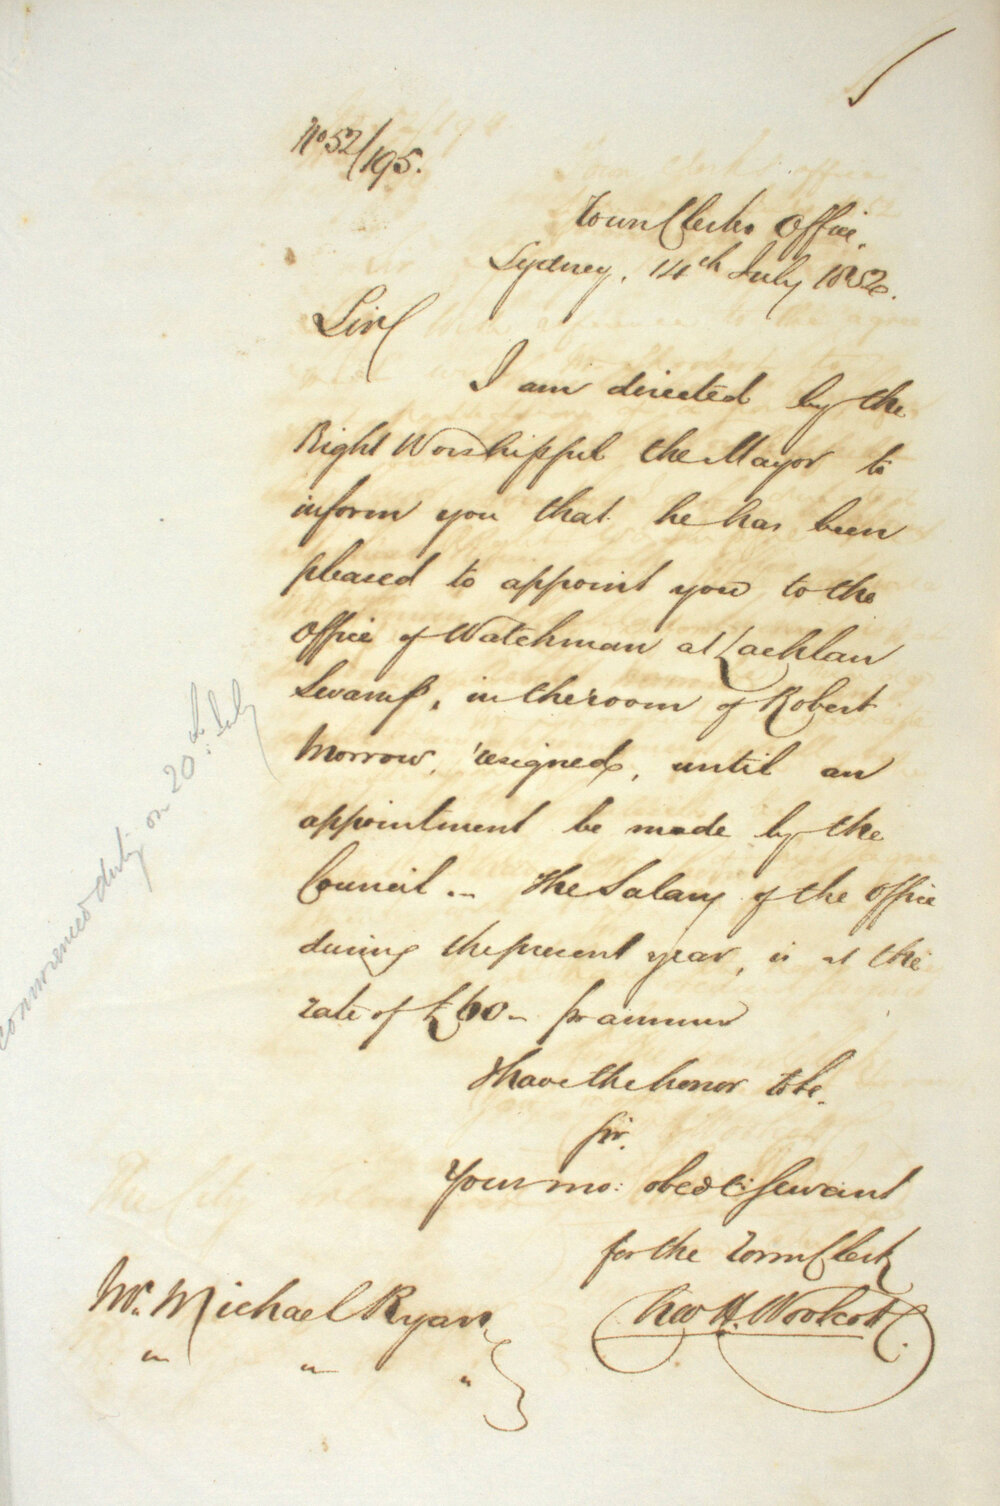 No 52/195.
Town Clerks Office,
Sydney, 14th July 1852.
Sir
I am directed by the
Right Worshipful the Mayor to
inform you that he has been
pleased to appoint you to the
Office of Watchman at Lachlan
Swamp, in the room of Robert
Morrow, resigned, until an
appointment be made by the
Council .. The Salary of the Office
during the present year, is at the
rate of £60 - pr annum
I have the honor to be.
Sir.
Your mo: obedt Servant
for the Town Clerk
Chas H. Woolcott.
Mr. Michael Ryan
" " "
commenced duty on 20th July